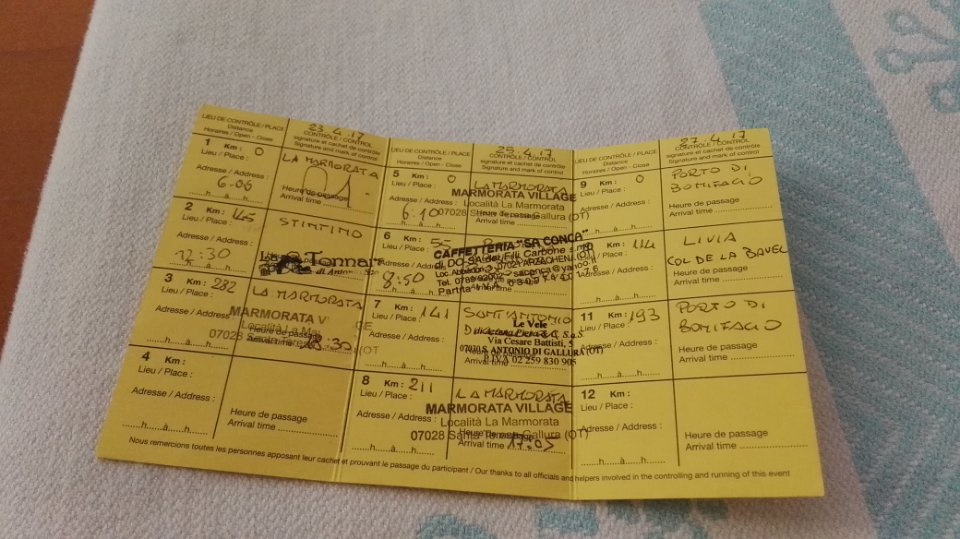 LIEU DE CONTRÔLE / PLACE
Distance
Horaires / Open - Close
23.4.17
CONTRÔLE / CONTROL
signature et cachet de contrôle
Signature and mark of control
1 Km : 0
Lieu / Place :
Adresse / Address :
6.06
LA MARMORATA
Heure de passage
2 Km : 145
Lieu / Place :
Adresse / Address :
12:30
STINTINO
Tonnar
di Anton
3 Km : 232
Lieu / Place :
Adresse / Address :
......h......à......h......
LA MARMORATA
MARMORATA V
Località La Mar
07028 San
Heure de passage
Arrival time
18:30
4 Km :
Lieu / Place :
Adresse / Address :
......h......à......h......
Heure de passage
Arrival time ..................
LIEU DE CONTRÔLE / PLACE
Distance
Horaires / Open - Close
25.4.17
CONTRÔLE / CONTROL
signature et cachet de contrôle
Signature and mark of control
5 Km : 0
Lieu / Place :
6.10
LA MARMORATA
MARMORATA VILLAGE
Località La Marmorata
07028 Santa Teresa Gallura (OT)
6 Km : 55
Lieu / Place :
8:50
CAFFETTERIA "SA CONCA"
07021 ARZACHENA (OT)
7 Km : 141
Lieu / Place :
Adresse / Address :
......h......à......h......
SANT'ANTONIO
Le Vele
Via Cesare Battisti, 5
07030 S. ANTONIO DI GALLURA (OT)
P.IVA 02 259 830 905
Heure de passage
Arrival time
8 Km : 211
Lieu / Place :
Adresse / Address :
......h......à......h......
LA MARMORATA
MARMORATA VILLAGE
Località La Marmorata
07028 Santa Teresa Gallura (OT)
Arrival time 17.05
LIEU DE CONTRÔLE / PLACE
Distance
Horaires / Open - Close
27.4.17
CONTRÔLE / CONTROL
signature et cachet de contrôle
Signature and mark of control
9 Km : 0
Lieu / Place :
Adresse / Address :
......h......à......h......
PORTO DI
BONIFACIO
Heure de passage
Arrival time ..................
10 Km : 114
Lieu / Place :
Adresse / Address :
......h......à......h......
LIVIA
COL DE LA
Heure de passage
Arrival time ..................
11 Km : 193
Lieu / Place :
Adresse / Address :
......h......à......h......
PORTO DI
BONIFACIO
Heure de passage
Arrival time ..................
12 Km :
Lieu / Place :
Adresse / Address :
......h......à......h......
Heure de passage
Arrival time ..................
Nous remercions toutes les personnes apposant leur cachet et prouvant le passage du participant / Our thanks to all officials and helpers involved in the controlling and running of this event